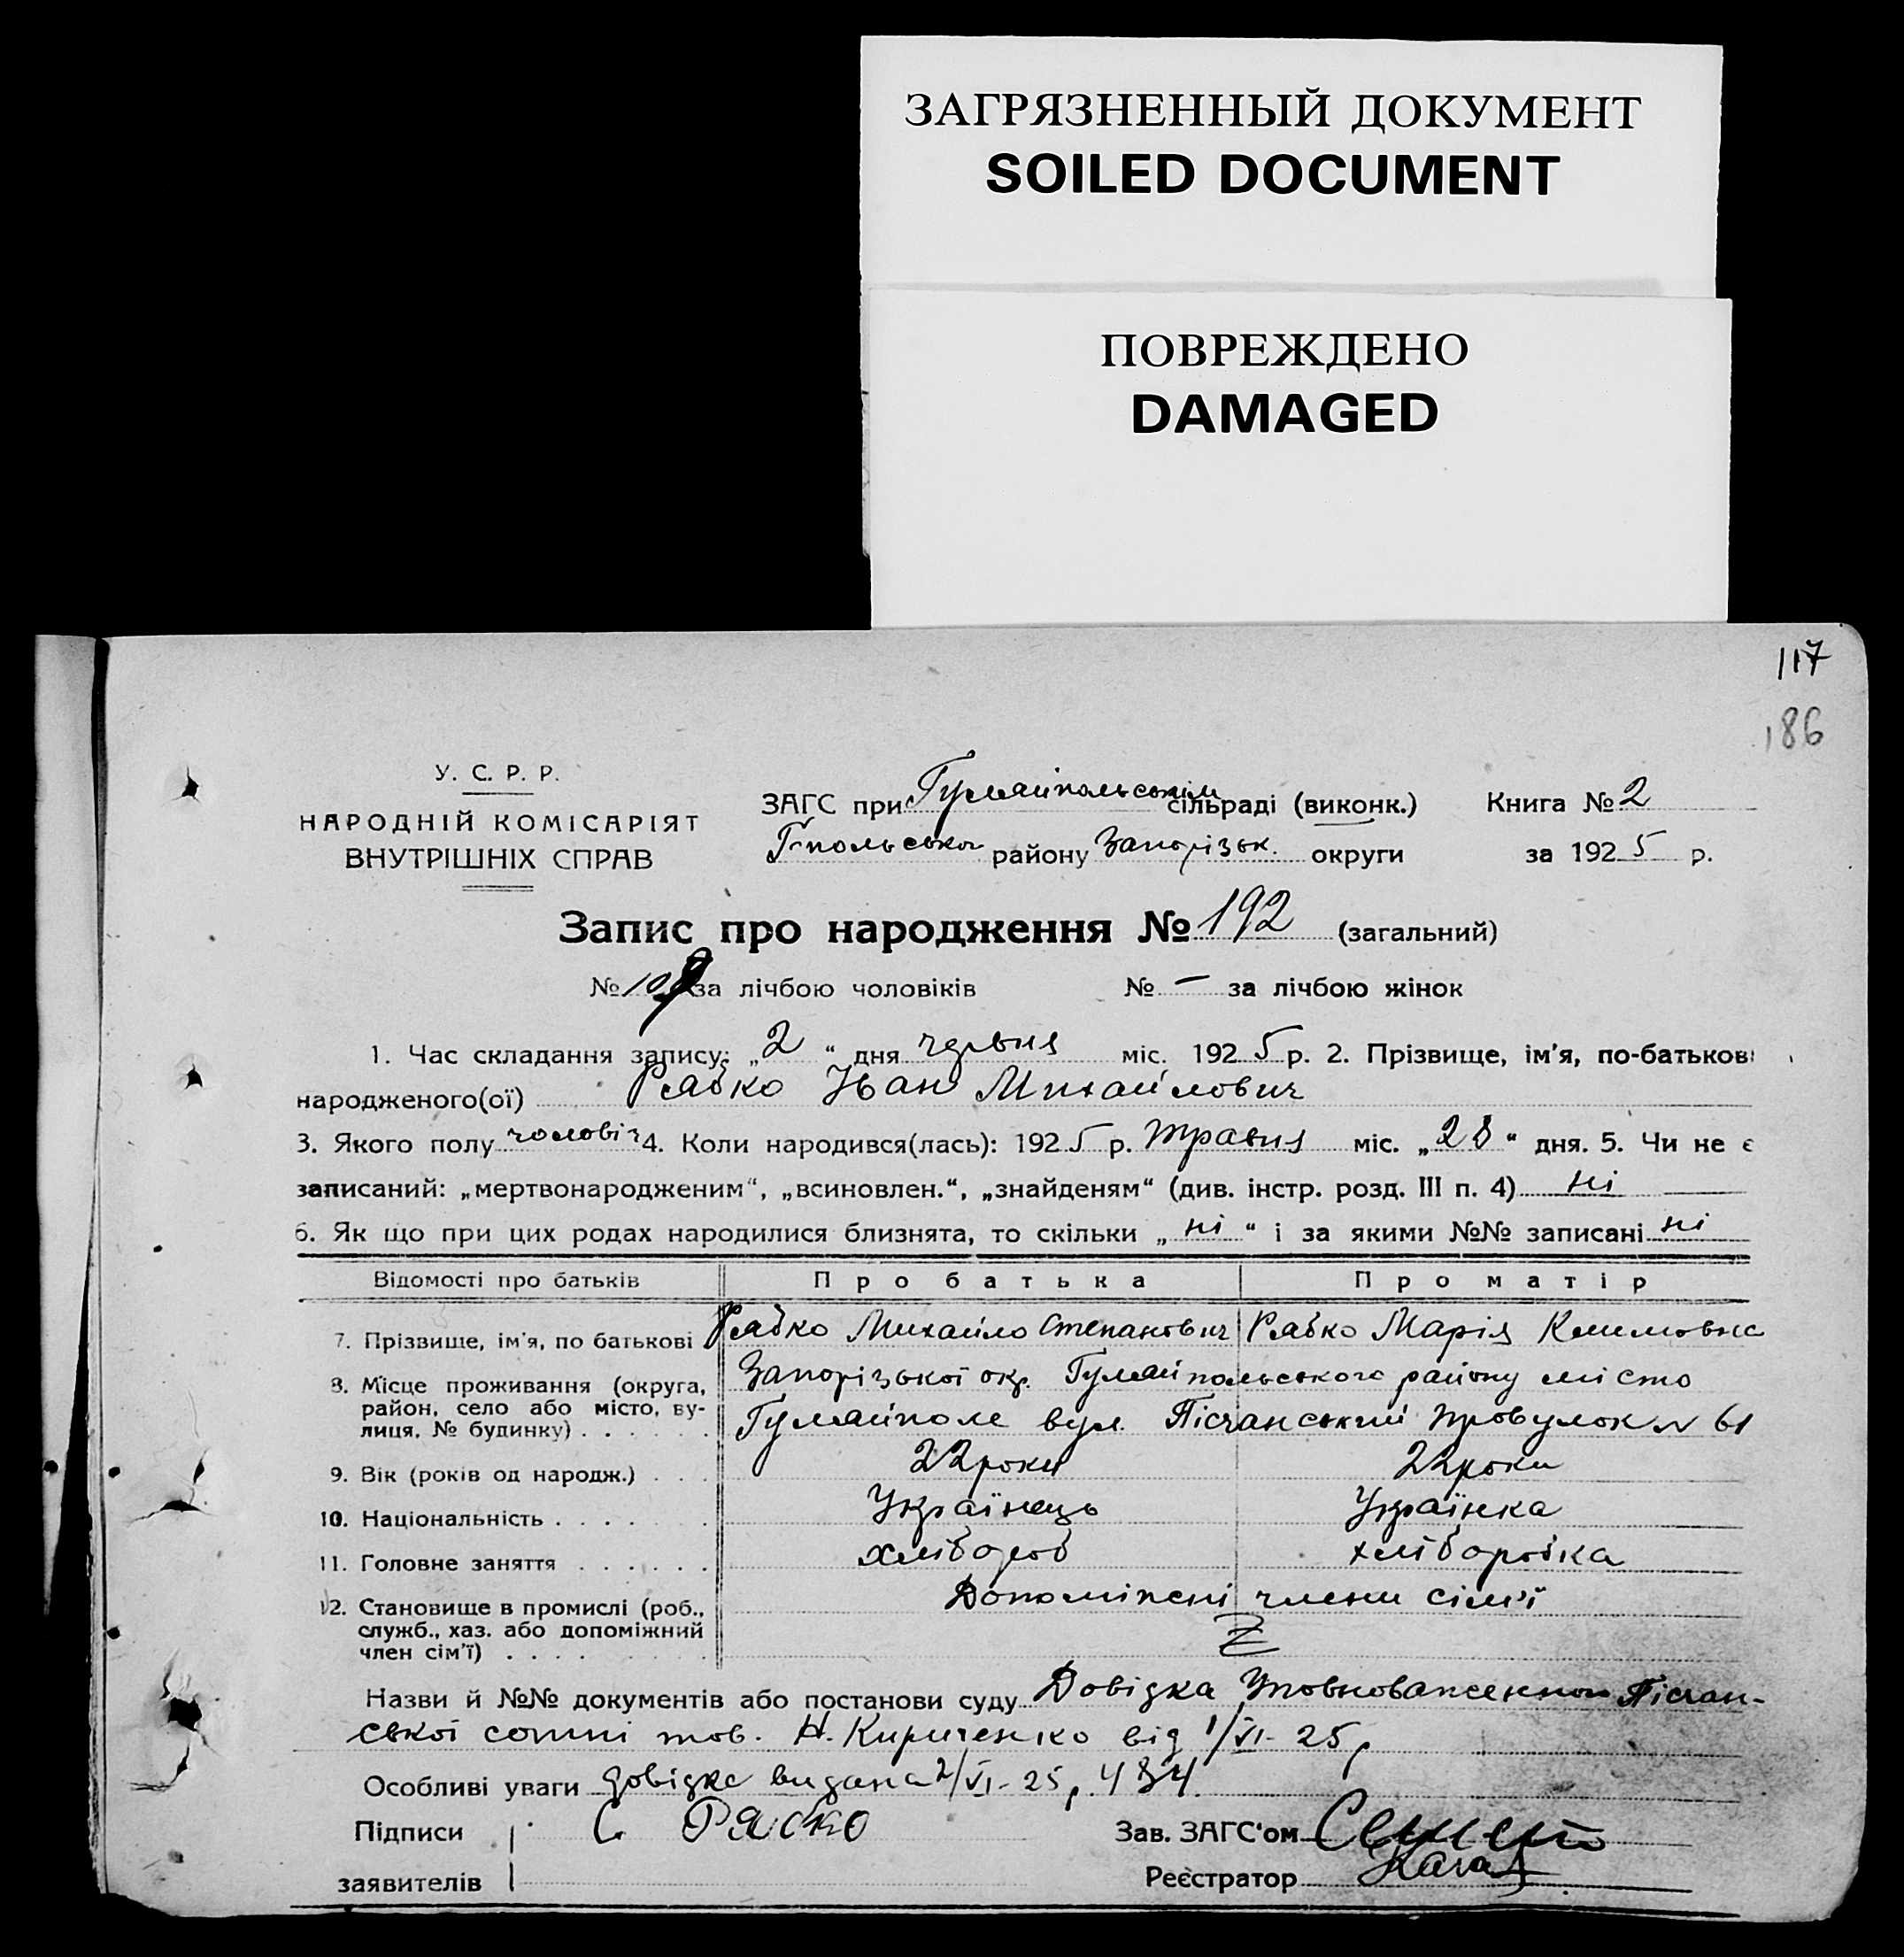 ЗАГРЯЗНЕННЫЙ ДОКУМЕНТ
SOILED DOCUMENT
ПОВРЕЖДЕНО
DAMAGED
117
186
У. С. Р. Р.
НАРОДНІЙ КОМІСАРІЯТ
ВНУТРІШНІХ СПРАВ
ЗАГС при Гуляйпольськім сільраді (виконк.) Книга № 2
Г-польськ району Запорізьк. округи за 1925 р.
Запис про народження № 192 (загальний)
№ 109 за лічбою чоловіків № – за лічбою жінок
1. Час складання запису: „2“ дня червня міс. 1925 р. 2. Прізвище, ім'я, по-батькові
народженого(ої) Рябко Іван Михайлович
3. Якого полу чоловіч 4. Коли народився(лась): 1925 р. травня міс. „28“ дня. 5. Чи не є
записаний: „мертвонародженим“, „всиновлен.“, „знайденям“ (див. інстр. розд. III п. 4) ні
6. Як що при цих родах народилися близнята, то скільки „ні“ і за якими №№ записані ні
Відомості про батьків Про батька Про матір
7. Прізвище, ім'я, по батькові Рябко Михайло Степанович Рябко Марія Климовна
8. Місце проживання (округа, район, село або місто, вулиця, № будинку) Запорізької окр. Гуляйпольського району місто
Гуляйполе вул. Пісчанський провулок № 61
9. Вік (років од народж.) 22 роки 22 роки
10. Національність Українець Українка
11. Головне заняття хлібороб хліборобка
12. Становище в промислі (роб., служб., хаз. або допоміжний член сім'ї) Допоміжні члени сім'ї
Назви й №№ документів або постанови суду Довідка Уповноваженного Пісчан-
ської сотні тов. Н. Кириченко від 1/VI-25 р
Особливі уваги довідка видана 2/VI-25 р. 484
Підписи С. Рябко Зав. ЗАГС'ом
заявителів Реєстратор